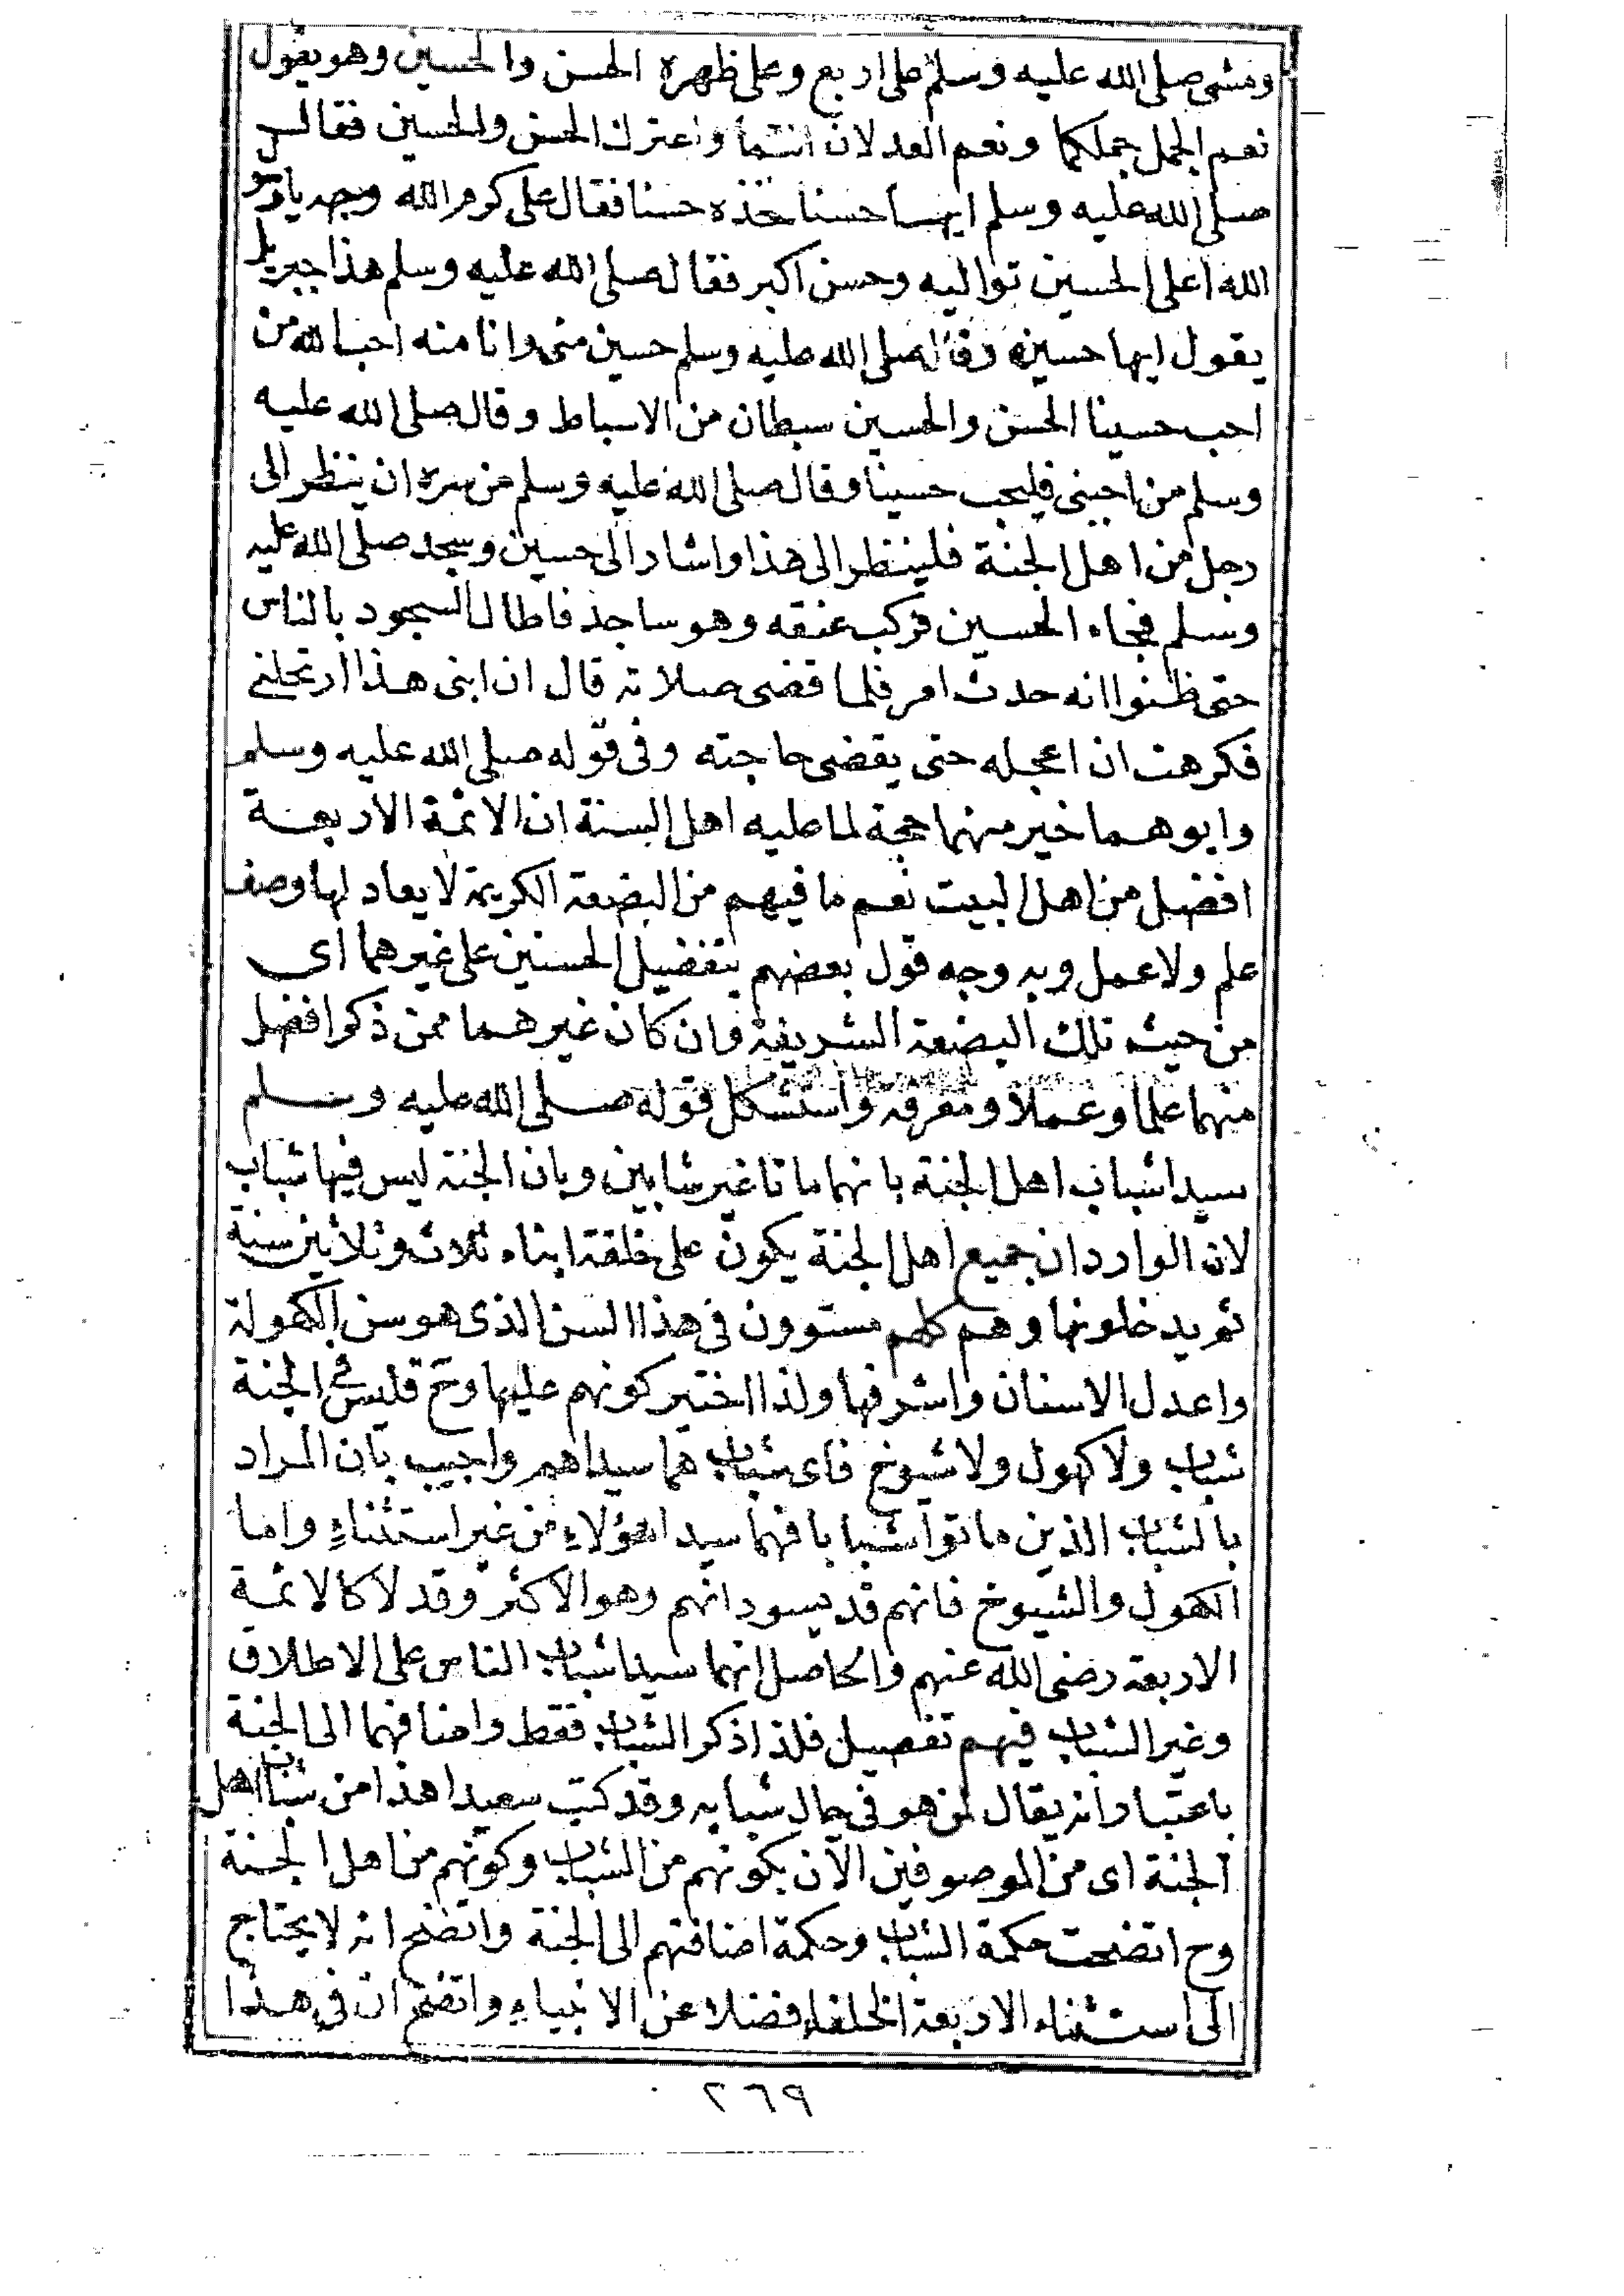 ومشى صلى الله عليه وسلم على اربع وعلى ظهره الحسن والحسين وهو يقول
نعم الجمل جملكما ونعم العدلان انتما واعترك الحسن والحسين فقال
صلى الله عليه وسلم ايها حسنا خذه حسنا فقال على كرم الله وجهه يا رسو
الله اعلى الحسين تواليه وحسن اكبر فقال صلى الله عليه وسلم هذا جبريل
يقول ايها حسين وقال صلى الله عليه وسلم حسين منى وانا منه احب الله من
احب حسينا الحسن والحسين سبطان من الاسباط وقال صلى الله عليه
وسلم من احبنى فليحب حسينا وقال صلى الله عليه وسلم من سره ان ينظر الى
رجل من اهل الجنة فلينظر الى هذا واشار الى حسين وسجد صلى الله عليه
وسلم فجاء الحسين فركب عنقه وهو ساجد فاطال السجود بالناس
حتى ظنوا انه حدث امر فلما قضى صلاته قال ان ابنى هذا ارتحلنى
فكرهت ان اعجله حتى يقضى حاجته وفى قوله صلى الله عليه وسلم
وابوهما خير منهما حجة لما عليه اهل السنة ان الائمة الاربعة
افضل من اهل البيت نعم ما فيهم من البضعة الكريمة لا يعادلها وصف
علم ولا عمل وبه وجه قول بعضهم بتفضيل الحسنين على غيرهما اى
من حيث تلك البضعة الشريفة وان كان غيرهما ممن ذكر افضل
منهما علما وعملا ومعرفة واستشكل قوله صلى الله عليه وسلم
سيدا شباب اهل الجنة بانهما ماتا غير شابين وبان الجنة ليس فيها شباب
لان الوارد ان جميع اهل الجنة يكون على خلقة ابناء ثلاث وثلاثين سنة
ثم يدخلونها وهم كلهم مستوون فى هذا السن الذى هو سن الكهولة
واعدل الاسنان واشرفها ولذا اختير كونهم عليها وح فليس فى الجنة
شباب ولا كهول ولا شيوخ فاى شباب هما سيداهم واجيب بان المراد
بالشباب الذين ماتوا شبابا فهما سيدا هؤلاء من غير استثناء واما
الكهول والشيوخ فانهم قد يسودانهم وهو الاكثر وقد لا كالائمة
الاربعة رضى الله عنهم والحاصل انهما سيدا شباب الناس على الاطلاق
وغير الشباب فيهم تفصيل فلذا ذكر الشباب فقط واضافهما الى الجنة
باعتبار انه يقال لمن هو فى حال شبابه وقد كتب سعيدا هذا من شباب اهل
الجنة اى من الموصوفين الآن بكونهم من الشباب وكونهم من اهل الجنة
وح اتضحت حكمة الشباب وحكمة اضافتهم الى الجنة واتضح انه لا يحتاج
الى استثناء الاربعة الخلفاء فضلا عن الانبياء واتضح ان فى هذا
٢٦٩